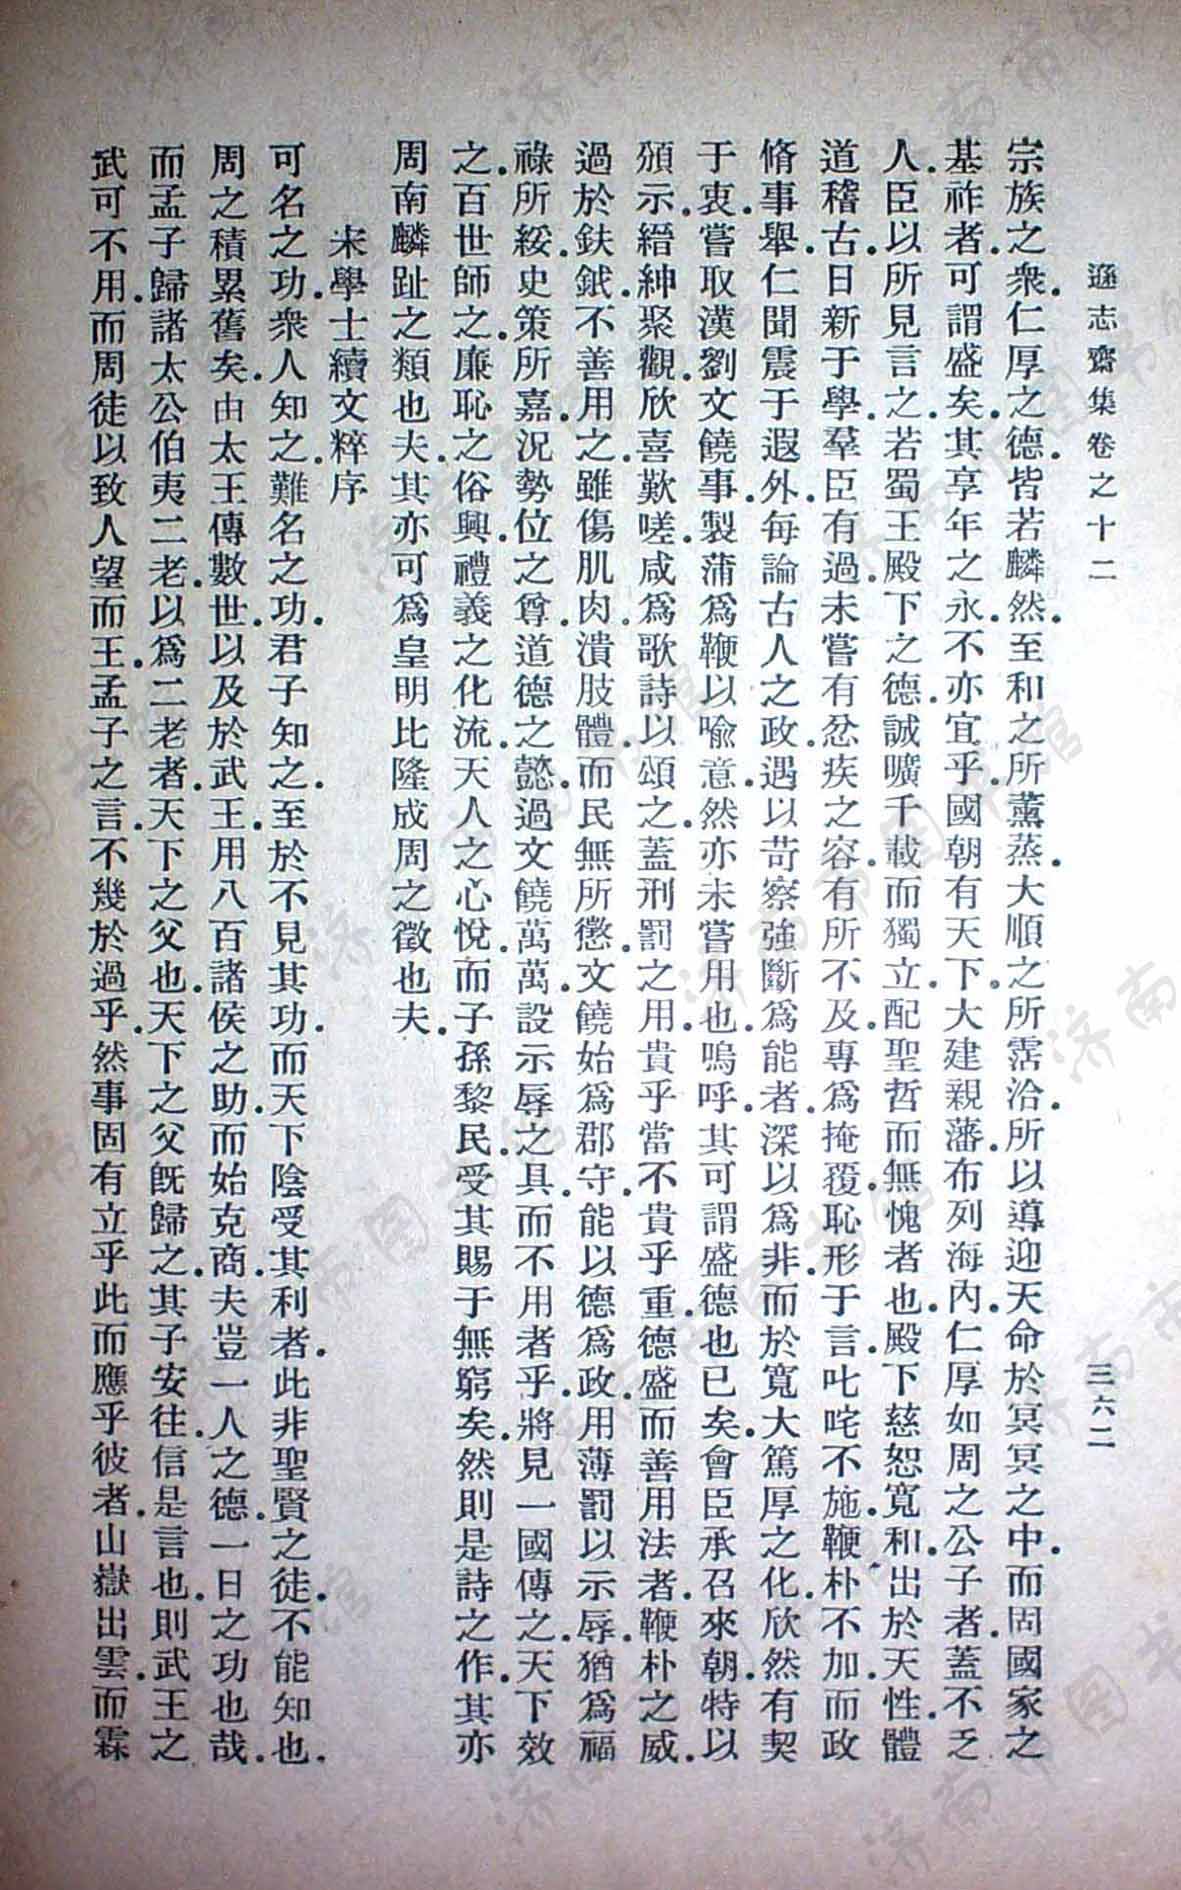 遜志齋集卷之十二
三六二
宗族之衆仁厚之德皆若麟然至和之所薰蒸大順之所霑洽所以導迎天命於冥冥之中而固國家之
基祚者可謂盛矣其享年之永不亦宜乎國朝有天下大建親藩布列海內仁厚如周之公子者蓋不乏
人臣以所見言之若蜀王殿下之德誠曠千載而獨立配聖哲而無愧者也殿下慈恕寬和出於天性體
道稽古日新于學羣臣有過未嘗有忿疾之容有所不及專爲掩覆恥形于言叱咤不施鞭朴不加而政
脩事舉仁聞震于遐外每論古人之政遇以苛察強斷爲能者深以爲非而於寬大篤厚之化欣然有契
于衷嘗取漢劉文饒事製蒲爲鞭以喻意然亦未嘗用也嗚呼其可謂盛德也已矣會臣承召來朝特以
頒示縉紳聚觀欣喜歎嗟咸爲歌詩以頌之蓋刑罰之用貴乎當不貴乎重德盛而善用法者鞭朴之威
過於鈇鉞不善用之雖傷肌肉潰肢體而民無所懲文饒始爲郡守能以德爲政用薄罰以示辱猶爲福
祿所綏史策所嘉況勢位之尊道德之懿過文饒萬萬設示辱之具而不用者乎將見一國傳之天下效
之百世師之廉恥之俗興禮義之化流天人之心悅而子孫黎民受其賜于無窮矣然則是詩之作其亦
周南麟趾之類也夫其亦可爲皇明比隆成周之徵也夫
宋學士續文粹序
可名之功衆人知之難名之功君子知之至於不見其功而天下陰受其利者此非聖賢之徒不能知也
周之積累舊矣由太王傳數世以及於武王用八百諸侯之助而始克商夫豈一人之德一日之功也哉
而孟子歸諸太公伯夷二老以爲二老者天下之父也天下之父既歸之其子安往信是言也則武王之
武可不用而周徒以致人望而王孟子之言不幾於過乎然事固有立乎此而應乎彼者山嶽出雲而霖